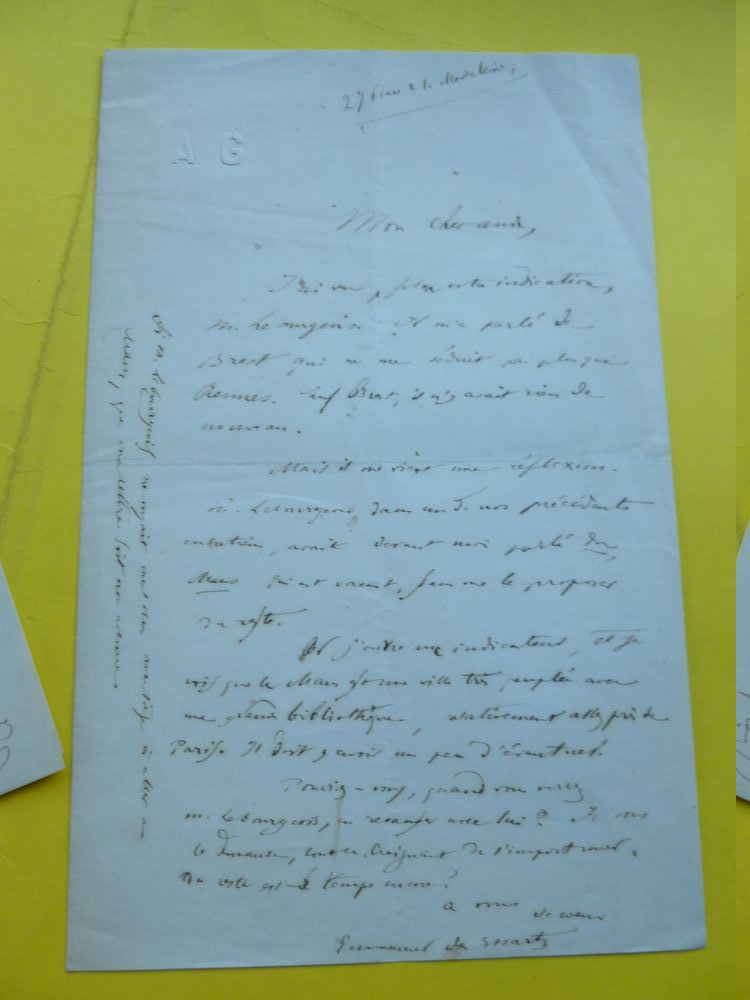 27 Place de la Madeleine
A G
Mon cher ami,
J'ai vu, selon votre indication,
M. Lebourgeois. Il m'a parlé de
Brest qui ne me séduit pas plus que
Rennes. Sauf Brest, il n'y avait rien de
nouveau.
Mais il me vient une réflexion.
M. Lebourgeois, dans un de nos précédents
entretiens, avait devant moi parlé du
Mans qui est vacant, sans me le proposer
du reste.
Or j'ouvre un indicateur, et je
vois que le Mans est une ville très peuplée avec
une grande bibliothèque, relativement assez près de
Paris. Il doit y avoir un peu d'
Pouvez-vous, quand vous verrez
M. Lebourgeois, en recauser avec lui? Je vous
le demande, tout en craignant de l'importuner.
Du reste est-il temps encore?
à vous de cœur
Emmanuel des Essarts
Si M. Lebourgeois ne voyait aucun avantage à aller au
Mans, que ma lettre soit non avenue.